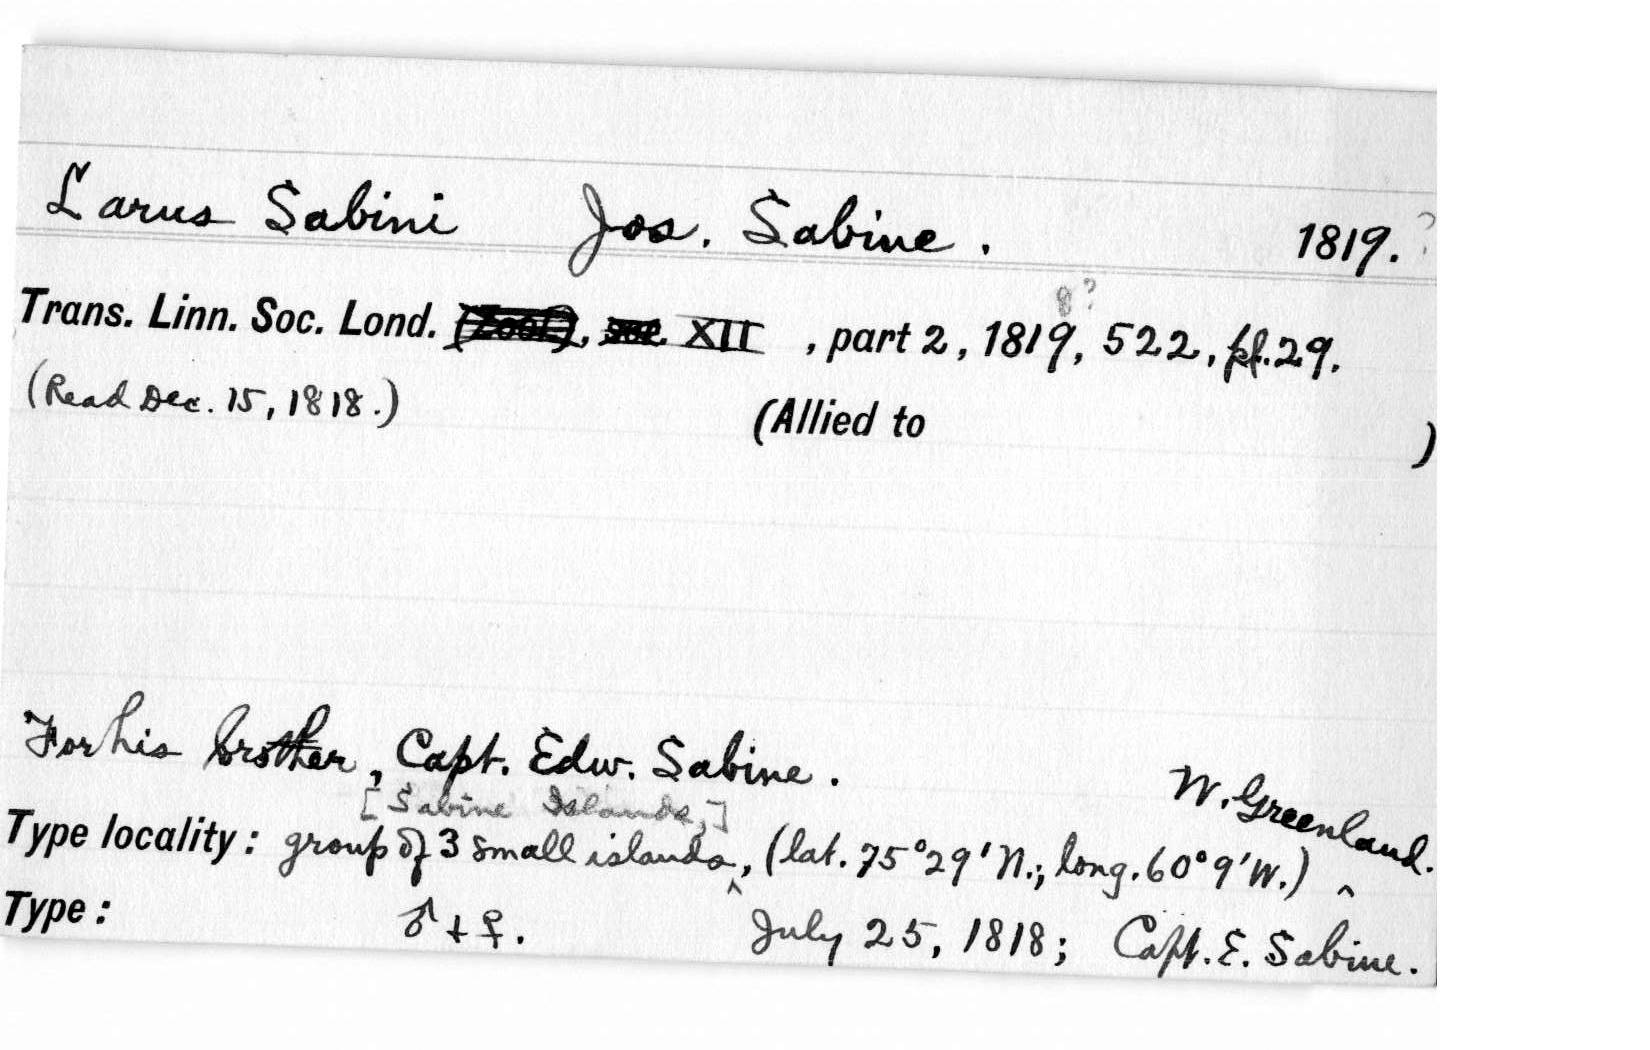 Larus Sabini Jos. Sabine. 1819. ?
8?
Trans. Linn. Soc. Lond. (Zool.), ser. XII, part 2, 1819, 522, pl. 29.
(Read Dec. 15, 1818.) (Allied to )
For his brother, Capt. Edw. Sabine.
W. Greenland.
[Sabine Islands,]
Type locality: group of 3 small islands, ^ (lat. 75°29'N.; long. 60°9'W.) ^
Type: ♂ + ♀. July 25, 1818; Capt. E. Sabine.